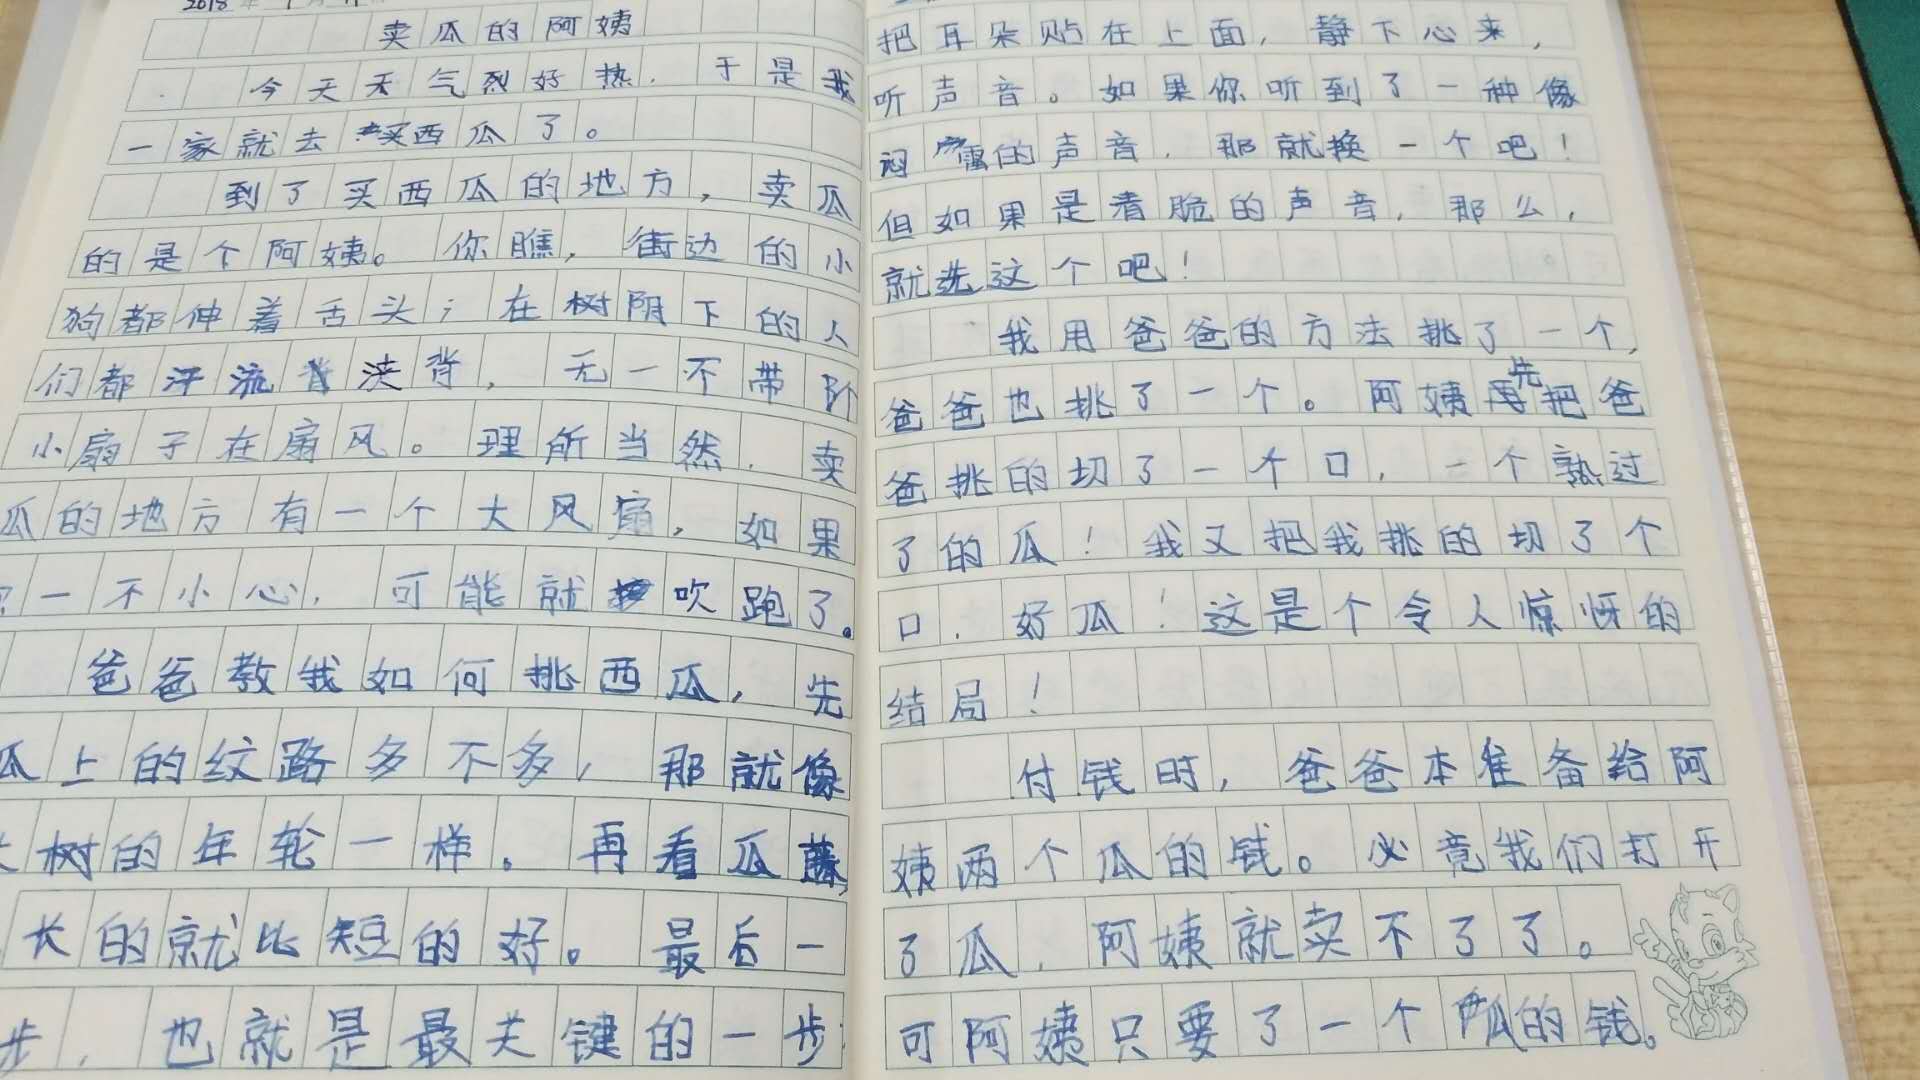 2018年
卖瓜的阿姨
今天天气烈好热，于是我
一家就去买西瓜了。
到了买西瓜的地方，卖瓜
的是个阿姨。你瞧，街边的小
狗都伸着舌头；在树阴下的人
们都汗流浃背，无一不带
小扇子在扇风。理所当然，卖
瓜的地方有一个大风扇，如果
一不小心，可能就吹跑了。
爸爸教我如何挑西瓜，先
瓜上的纹路多不多，那就像
树的年轮一样。再看瓜藤，
长的就比短的好。最后一
步，也就是最关键的一步：
把耳朵贴在上面，静下心来，
听声音。如果你听到了一种像
闷雷的声音，那就换一个吧！
但如果是清脆的声音，那么，
就选这个吧！
我用爸爸的方法挑了一个，
爸爸也挑了一个。阿姨先把爸
爸挑的切了一个口，一个熟过
了的瓜！我又把我挑的切了个
口，好瓜！这是个令人惊讶的
结局！
付钱时，爸爸本准备给阿
姨两个瓜的钱。必竟我们打开
了瓜，阿姨就卖不了了。
可阿姨只要了一个瓜的钱。